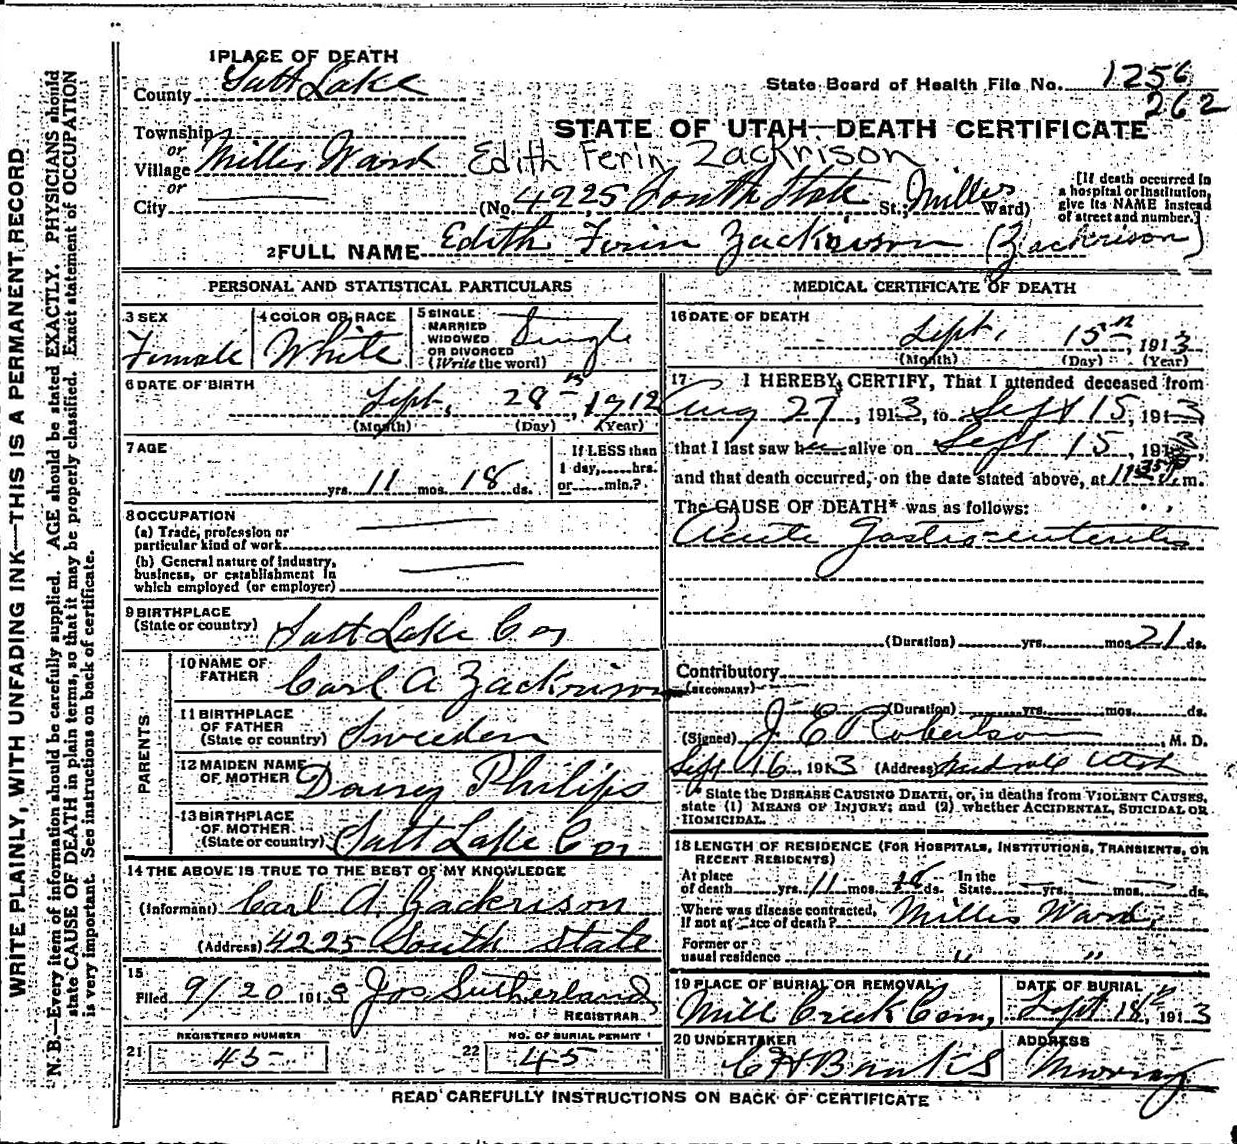 WRITE PLAINLY, WITH UNFADING INK—THIS IS A PERMANENT RECORD
N. B.—Every item of information should be carefully supplied. AGE should be stated EXACTLY. PHYSICIANS should
state CAUSE OF DEATH in plain terms, so that it may be properly classified. Exact statement of OCCUPATION
is very important. See instructions on back of certificate.
1 PLACE OF DEATH
County Salt Lake
State Board of Health File No. 1256
262
Township
or
Village Millis Ward
or
City
STATE OF UTAH—DEATH CERTIFICATE
Edith Ferin Zackrison
(No. 4225 South State St.; Millis Ward)
[If death occurred in
a hospital or institution,
give its NAME instead
of street and number.]
2 FULL NAME Edith Ferin Zackrison (Zackrison)
PERSONAL AND STATISTICAL PARTICULARS
3 SEX
Female
4 COLOR OR RACE
White
5 SINGLE
MARRIED
WIDOWED
OR DIVORCED
(Write the word)
Single
6 DATE OF BIRTH
Sept. 28th, 1912
(Month) (Day) (Year)
7 AGE
yrs. 11 mos. 18 ds.
If LESS than
1 day,......hrs.
or......min.?
8 OCCUPATION
(a) Trade, profession or
particular kind of work
(b) General nature of industry,
business, or establishment in
which employed (or employer)
9 BIRTHPLACE
(State or country) Salt Lake Co
PARENTS
10 NAME OF
FATHER
Carl A Zackrison
11 BIRTHPLACE
OF FATHER
(State or country) Sweeden
12 MAIDEN NAME
OF MOTHER Daisy Philips
13 BIRTHPLACE
OF MOTHER
(State or country) Salt Lake Co
14 THE ABOVE IS TRUE TO THE BEST OF MY KNOWLEDGE
(Informant) Carl A. Zackrison
(Address) 4225 South State
15
Filed 9/20 1913 Jos Sutherland
REGISTRAR
REGISTERED NUMBER
21 45
NO. OF BURIAL PERMIT
22 45
MEDICAL CERTIFICATE OF DEATH
16 DATE OF DEATH
Sept. 15th, 1913
(Month) (Day) (Year)
17 I HEREBY CERTIFY, That I attended deceased from
Aug 27, 1913, to Sept 15, 1913
that I last saw her alive on Sept 15, 1913,
and that death occurred, on the date stated above, at 11:35 P m.
The CAUSE OF DEATH* was as follows:
Acute Gastro-enteritis
(Duration) yrs. mos. 21 ds.
Contributory
(SECONDARY)
(Duration) yrs. mos. ds.
(Signed) J. E. Robertson, M. D.
Sept 16, 1913 (Address) Midvale Utah
* State the DISEASE CAUSING DEATH, or, in deaths from VIOLENT CAUSES,
state (1) MEANS OF INJURY; and (2) whether ACCIDENTAL, SUICIDAL OR
HOMICIDAL.
18 LENGTH OF RESIDENCE (FOR HOSPITALS, INSTITUTIONS, TRANSIENTS, OR
RECENT RESIDENTS)
At place
of death yrs. 11 mos. 18 ds.
In the
State yrs. mos. ds.
Where was disease contracted,
if not at place of death? Millis Ward,
Former or
usual residence " "
19 PLACE OF BURIAL OR REMOVAL
Mill Creek Cem,
DATE OF BURIAL
Sept 18th, 1913
20 UNDERTAKER
C H Banks
ADDRESS
Murray
READ CAREFULLY INSTRUCTIONS ON BACK OF CERTIFICATE